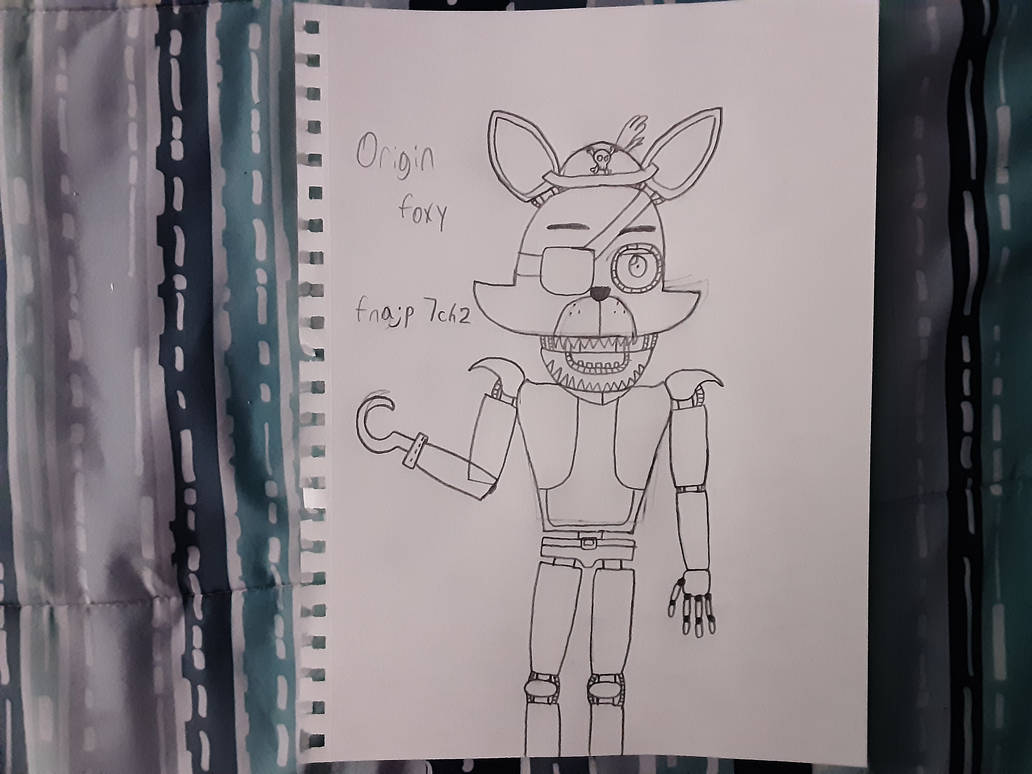 Origin
foxy
fnajp 7ch2